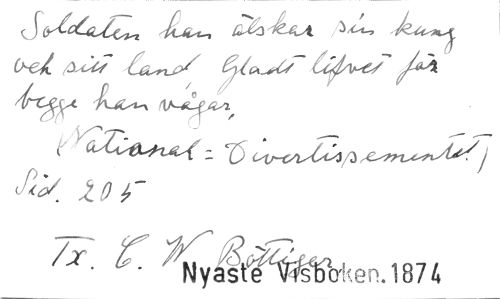 Soldaten han älskar sin kung
och sitt land, Gladt lifvet för
begge han vågar,
National=Divertissementet)
Sid. 205
Tx. C. W. Böttiger
Nyaste Visboken.1874